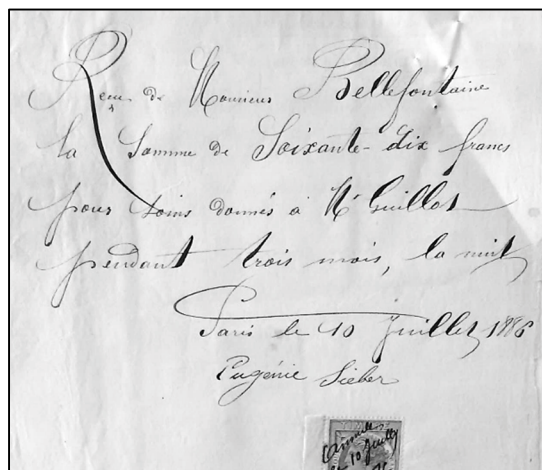 Reçu de Monsieur Bellefontaine
la Somme de Soixante-dix francs
pour soins donnés à Mr Guillot
pendant trois mois, la nuit
Paris le 10 Juillet 1886
Eugénie Sieber
10 Juillet